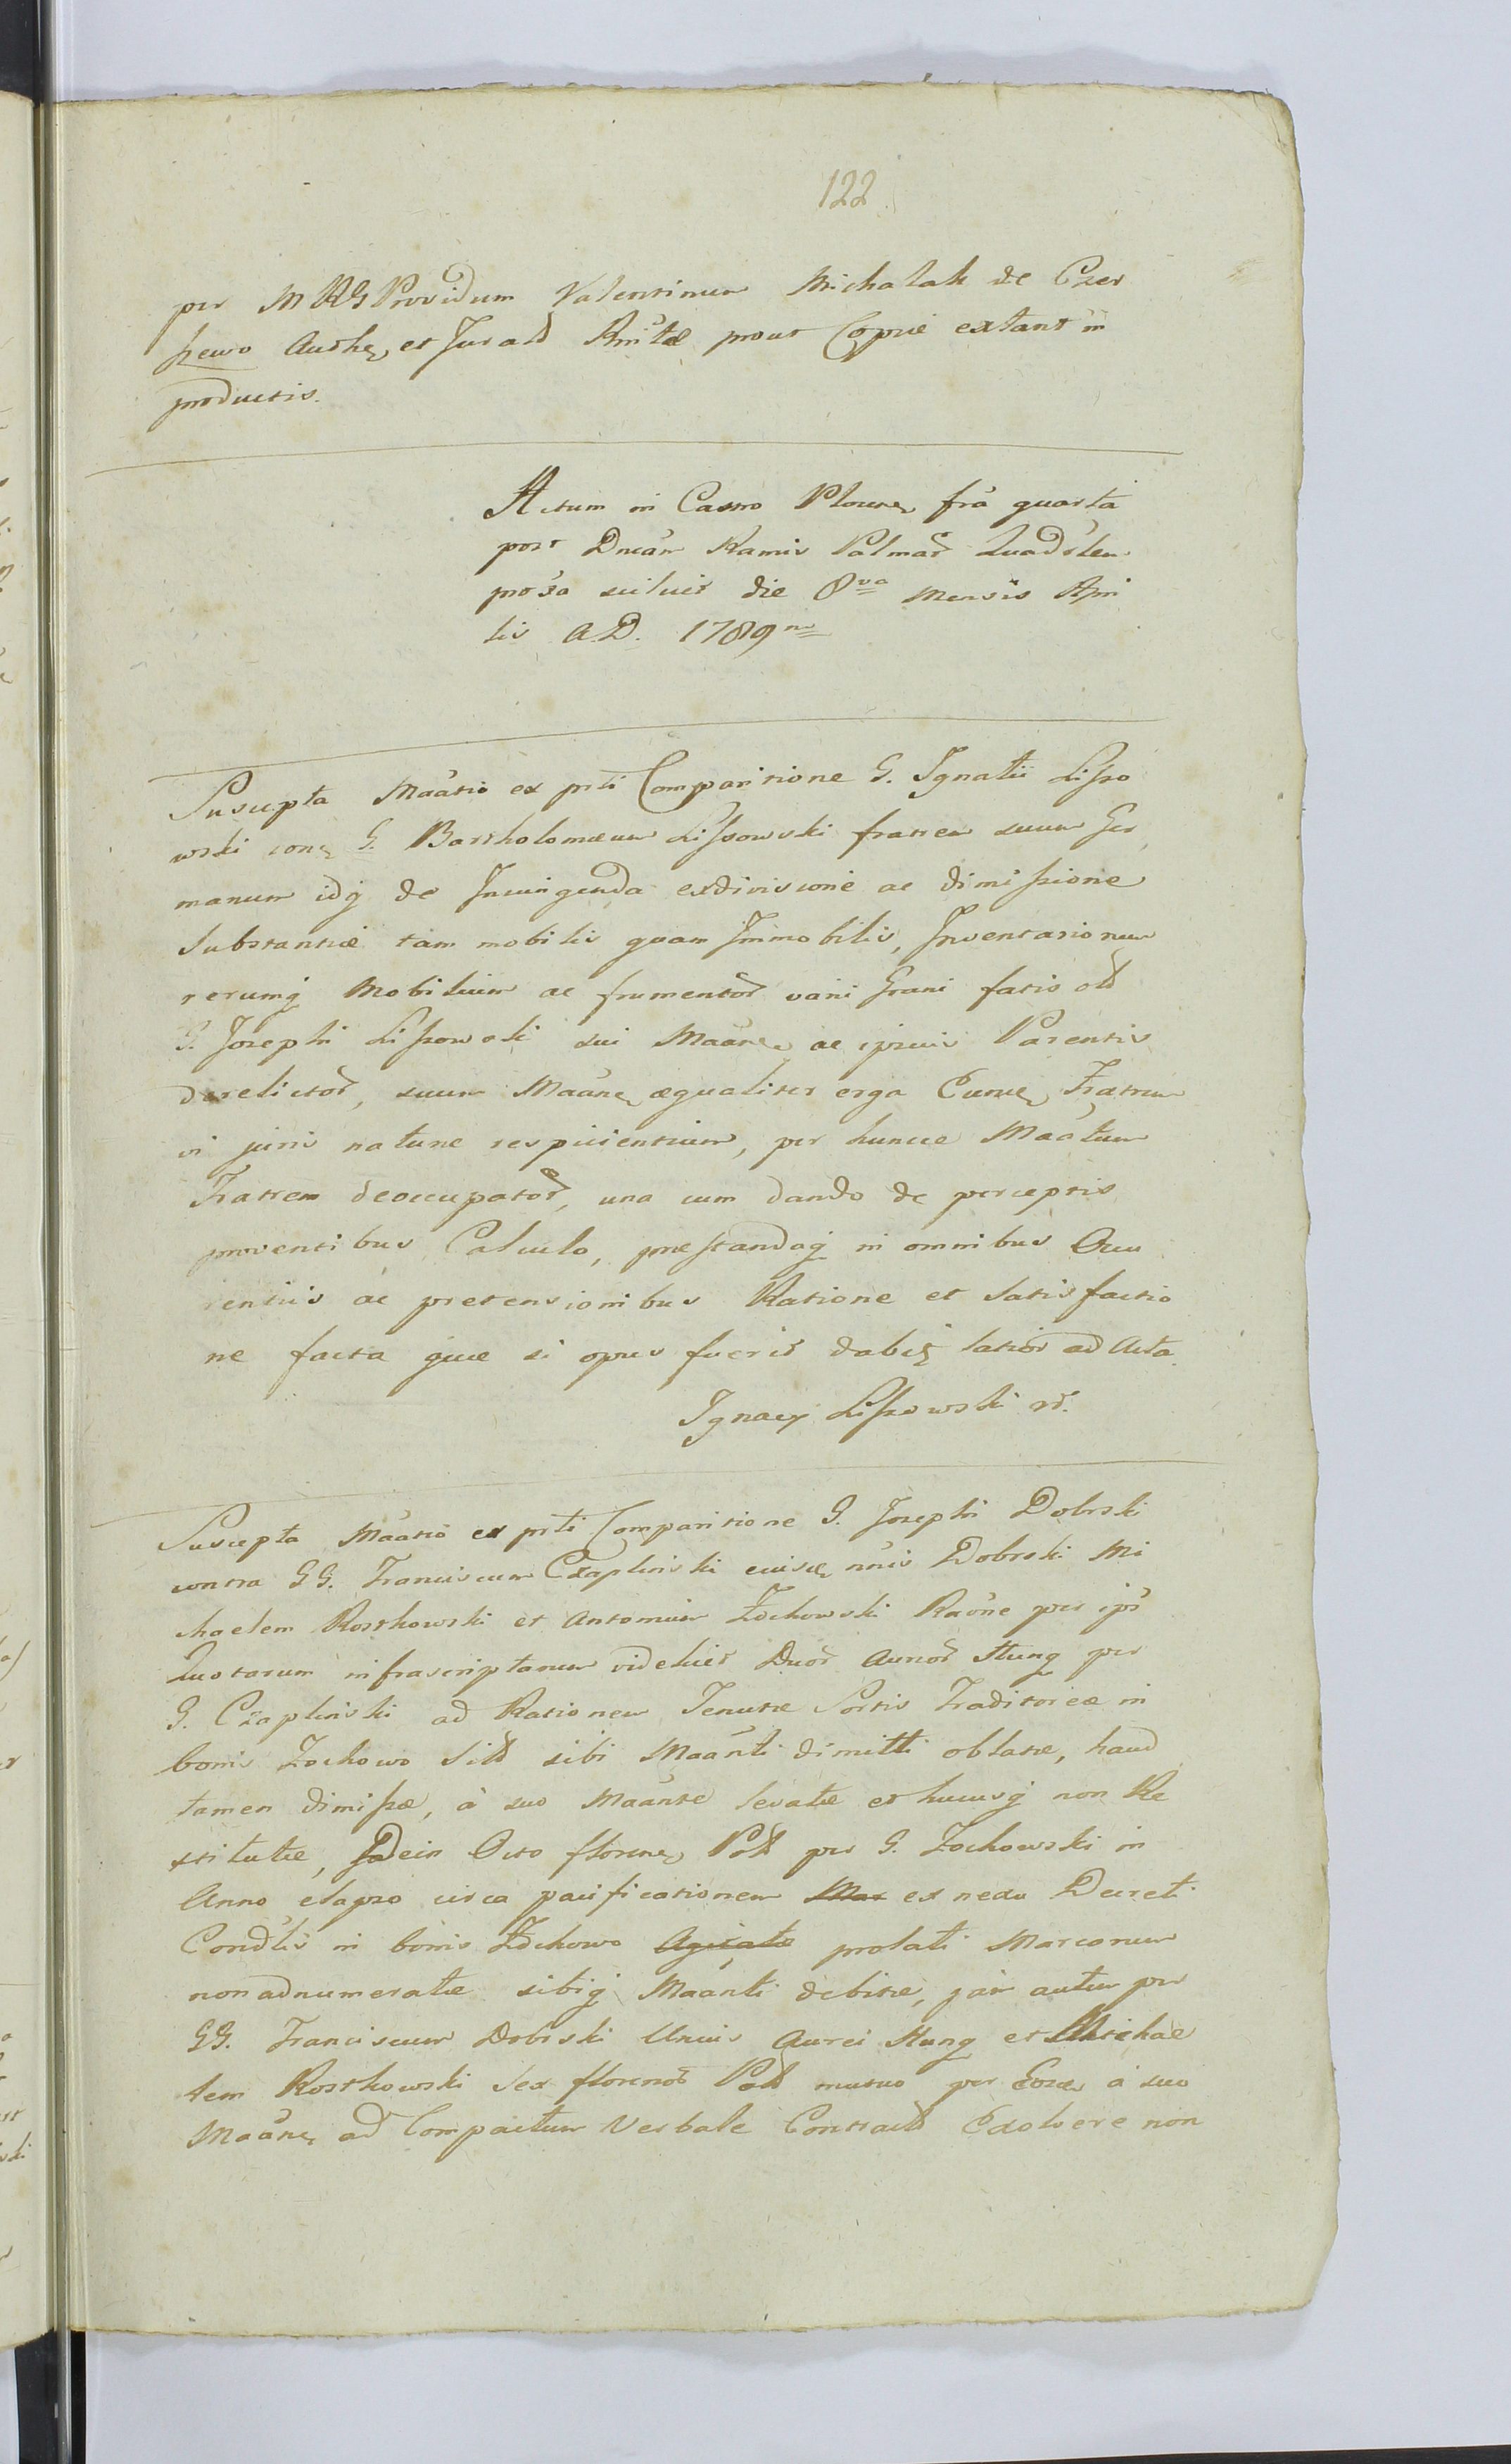 122
per MRG Providum Valentinum Michalak de Czer
szewo Authe, et Jurato Rmtæ prout Copiæ extant in
productis.
Actum in Castro Plocen, fra quarta
post Dncam Ramis Palmar Quadrlem
proxa scilicet die 8va mensis Apri
lis A.D. 1789no
Suscepta Maatio ex prti Comparitione G. Ignatii Lisso
wski con, G. Bartholomæum Lissowski fratrem suum Ger
manum idq de Iniungenda exdivisione ac dimissione
Substantiæ tam mobilis quam Immobilis, Inventariorum
rerumq Mobilium ac frumentor varii Grani fatis olim
G. Josephi Liszowski sui Maan, ac ipsius Parentis
derelictor, suum Maan, æqualiter erga Eume, Fratrem
vi juris naturæ respicientium, per huncce Maatum
Fratrem deoccupator, una cum dando de perceptis
proventibus Calculo, prestandaq in omnibus Occu
rentiis ac pretensionibus Ratione et Satisfactio
ne facta quæ si opus fuerit dabit, latior ad Acta.
Ignacy Liszowski
Suscepta Maatio ex prti Comparitione G. Josephi Dobrski
contra GG. Franciscum Czaplinski Dobrski Mi
chaelem Rostkowski et Antonium Zochowski Raone per ipsos
Quotarum infrascriptarum videlicet Duor Aureor Hung per
G. Czaplinski ad Rationem Tenutæ Sortis Traditoreæ in
bonis Zochowo Sitæ sibi Maanti dimitti oblatæ, haud
tamen dimissæ, à suo Maante levatæ et hucusq non Re
stitutæ, Octo floreno, Poll per G. Zochowski in
Anno elapso circa pacificationem Mar ex nexu Decreti
Condlis in bonis Zochowo Agitatæ prolati Marcarum
non adnumeratæ sibiq Maanti debitæ, jam autem per
GG. Franciscum Dobrski Unius Aurei Hung et Michae
lem Rostkowski Sex florenor Poll mutuo per Eosce, à suo
Maan, ad Compactum Verbale Contract Exolvere non